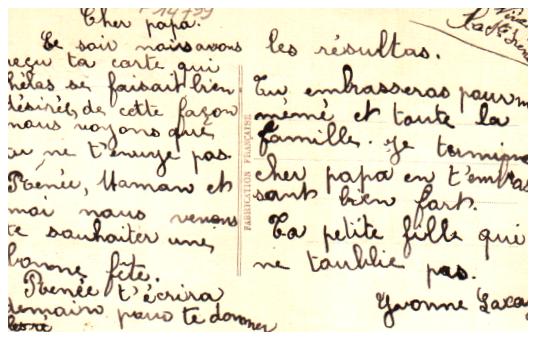 Cher papa.
Ce soir nous avons
reçu ta carte qui
hélas se faisait bien
désirés, de cette façon
nous voyons que
tu ne t'ennuye pas.
Renée, Maman et
moi nous venons
te souhaiter une
bonne fête.
Renée t'écrira
demain pour te donner
les ré
les résultas.
Tu embrasseras pour m
mémé et toute la
famille. Je termine
cher papa en t'embras
sant bien fort.
Ta petite fille qui
ne t'oublie pas.
Yvonne
FABRICATION FRANÇAISE
Vive